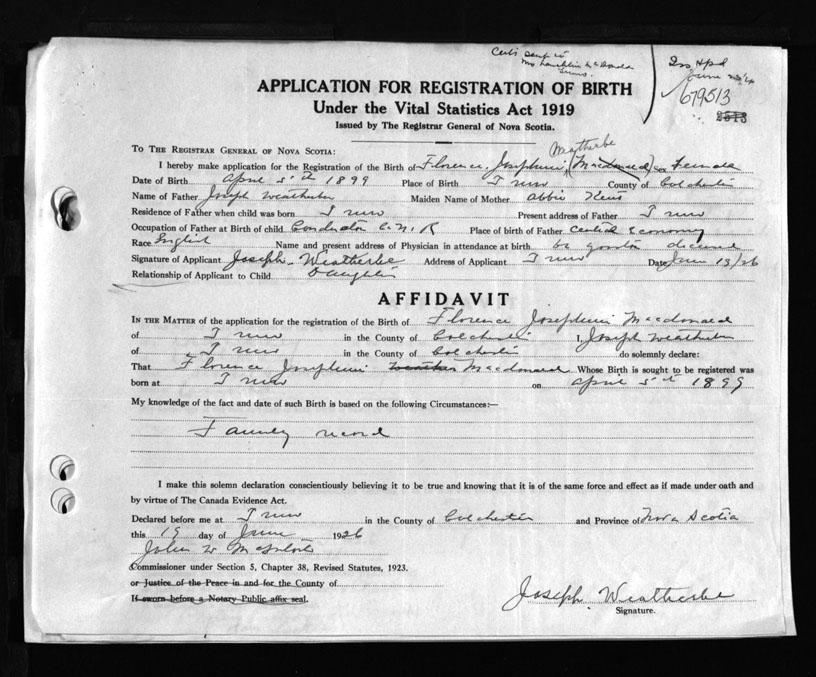 Certs sent to
Mrs Laughlin McDonald
Truro.
June
679513
2513
APPLICATION FOR REGISTRATION OF BIRTH
Under the Vital Statistics Act 1919
Issued by The Registrar General of Nova Scotia.
TO THE REGISTRAR GENERAL OF NOVA SCOTIA:
Weatherbe
I hereby make application for the Registration of the Birth of Florence Josephine (Macdonald) Female
Date of Birth April 5th 1899 Place of Birth Truro County of Colchester
Name of Father Joseph Weatherbe Maiden Name of Mother Abbie
Residence of Father when child was born Truro Present address of Father Truro
Occupation of Father at Birth of child Conductor C.N.R Place of birth of Father Central Economy
Race English Name and present address of Physician in attendance at birth
Signature of Applicant Joseph Weatherbe Address of Applicant Truro Date June 19/26
Relationship of Applicant to Child Daughter
AFFIDAVIT
IN THE MATTER of the application for the registration of the Birth of Florence Josephine Macdonald
of Truro in the County of Colchester I, Joseph Weatherbe
of Truro in the County of Colchester do solemnly declare:
That Florence Josephine Macdonald Whose Birth is sought to be registered was
born at Truro on April 5th 1899
My knowledge of the fact and date of such Birth is based on the following Circumstances:—
Family record
I make this solemn declaration conscientiously believing it to be true and knowing that it is of the same force and effect as if made under oath and
by virtue of The Canada Evidence Act.
Declared before me at Truro in the County of Colchester and Province of Nova Scotia
this 19 day of June 1926
John W McIntosh
Commissioner under Section 5, Chapter 38, Revised Statutes, 1923.
or Justice of the Peace in and for the County of
If sworn before a Notary Public affix seal.
Joseph Weatherbe
Signature.